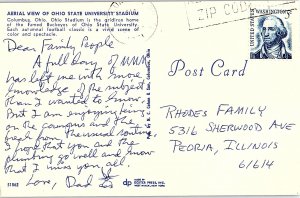 AERIAL VIEW OF OHIO STATE UNIVERSITY STADIUM
Columbus, Ohio. Ohio Stadium is the gridiron home
of the famed Buckeyes of Ohio State University.
Each autumnal football classic is a vivid scene of
color and spectacle.
ZIP CODE
UNITED STATES
WASHINGTON
Dear Family People
A full day of
has left me with more
knowledge of the subject
than I wanted to know.
But I am enjoying being
on the campus and the
break from the usual routine.
I trust that you and the
plumbing go well and know
that I miss you all.
Love, Dad
Post Card
RHODES FAMILY
5316 SHERWOOD AVE
PEORIA, ILLINOIS
61614
51862
dp
DEXTER PRESS, INC.
WEST NYACK, NEW YORK